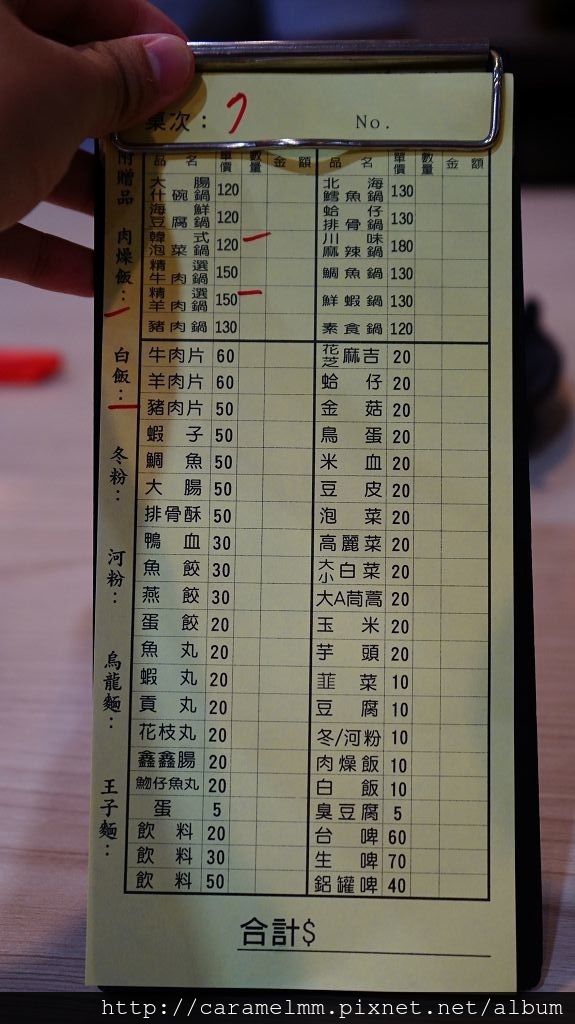 桌次： 7 No.
附贈品 肉燥飯： 白飯： 冬粉： 河粉： 烏龍麵： 王子麵：
品名 單價 數量 金額 品名 單價 數量 金額
大腸什碗鍋 120 北海鱈魚鍋 130
海鮮豆腐鍋 120 蛤仔排骨鍋 130
韓式泡菜鍋 120 川味麻辣鍋 180
精選牛肉鍋 150 鯛魚鍋 130
精選羊肉鍋 150 鮮蝦鍋 130
豬肉鍋 130 素食鍋 120
牛肉片 60 花芝麻吉 20
羊肉片 60 蛤仔 20
豬肉片 50 金菇 20
蝦子 50 鳥蛋 20
鯛魚 50 米血 20
大腸 50 豆皮 20
排骨酥 50 泡菜 20
鴨血 30 高麗菜 20
魚餃 30 大小白菜 20
燕餃 30 大A茼蒿 20
蛋餃 20 玉米 20
魚丸 20 芋頭 20
蝦丸 20 韮菜 10
貢丸 20 豆腐 10
花枝丸 20 冬/河粉 10
鑫鑫腸 20 肉燥飯 10
魩仔魚丸 20 白飯 10
蛋 5 臭豆腐 5
飲料 20 台啤 60
飲料 30 生啤 70
飲料 50 鋁罐啤 40
合計$
http://caramelmm.pixnet.net/album